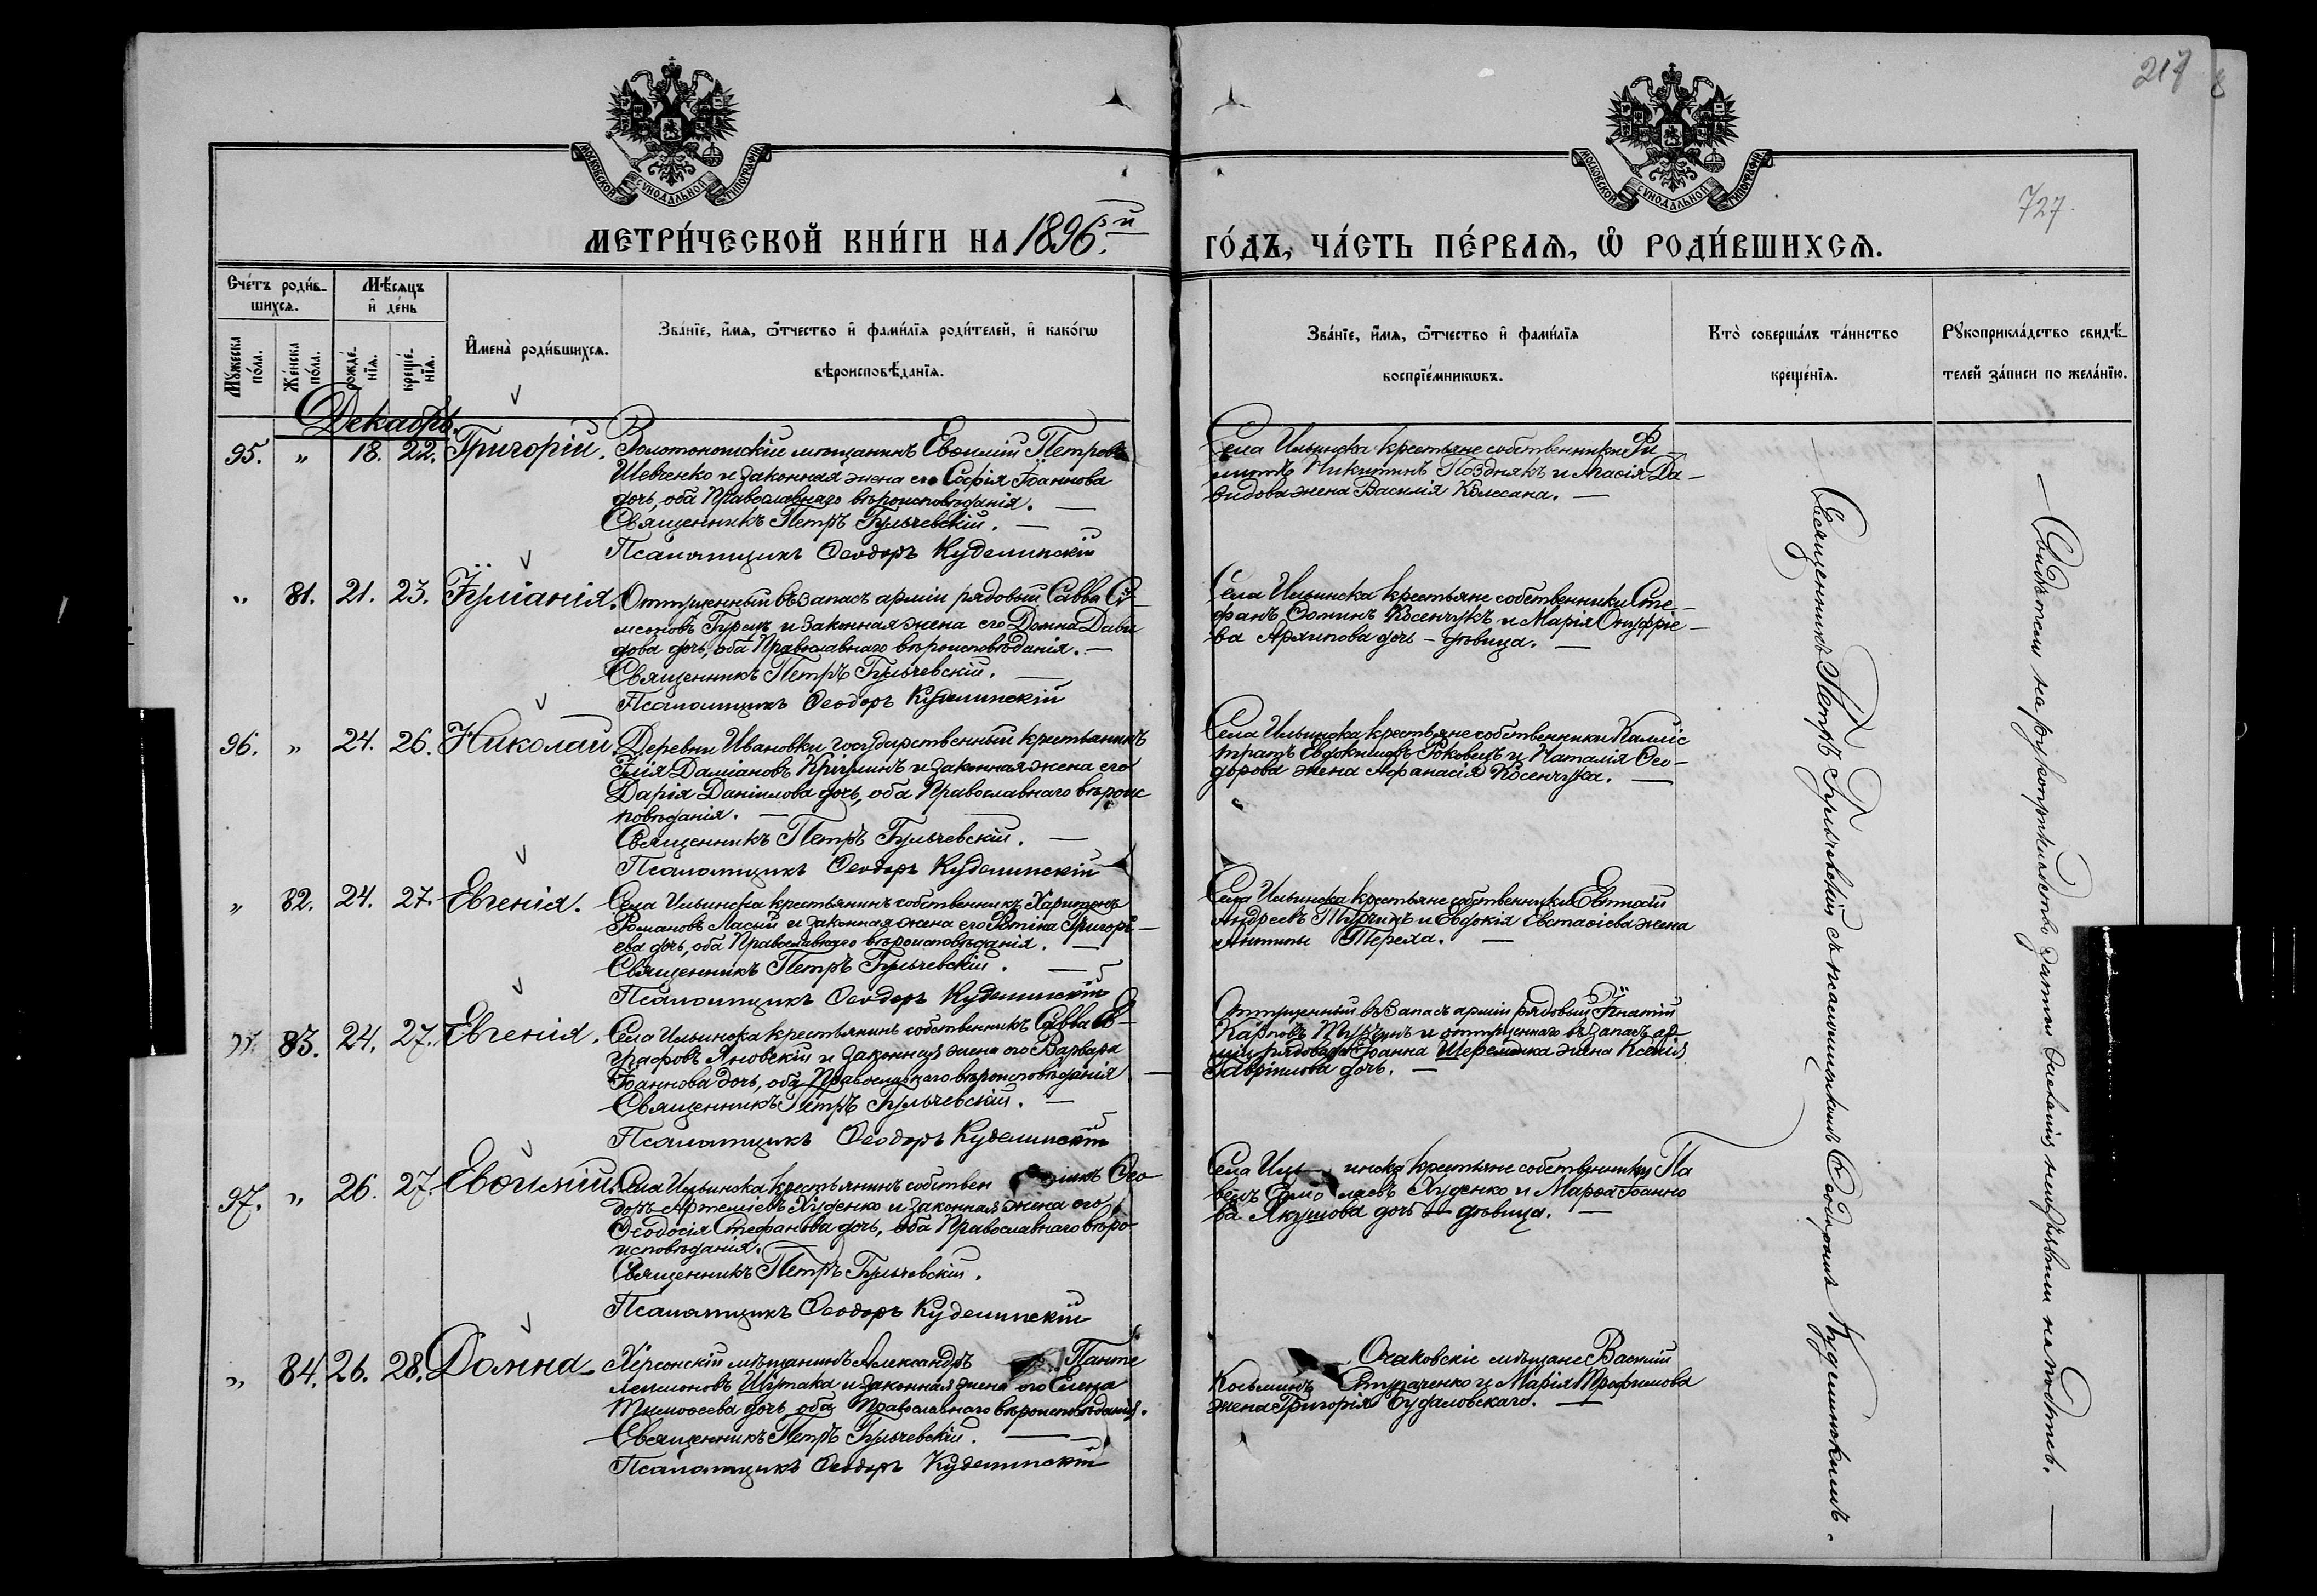 217
8
727.
МОСКОВСКОЙ СѴНОДАЛЬНОЙ ТИПОГРАФІИ
МОСКОВСКОЙ СѴНОДАЛЬНОЙ ТИПОГРАФІИ
МЕТРИ́ЧЕСКОЙ КНИ́ГИ НА 1896й
ГО́ДЪ, ЧА́СТЬ ПЕ́РВАѦ, Ѽ РОДИ́ВШИХСѦ.
Сче́тъ роди́в-
шихсѧ.
Мѣ́сѧцъ
и҆ де́нь
Мꙋ́жеска по́ла.
Же́нска по́ла.
рожде́-нїѧ.
креще́-нїѧ.
И҆мена̀ роди́вшихсѧ.
Зва́нїе, и҆́мѧ, ѻ҆́тчество и҆ фами́лїѧ роди́телей, и҆ како́гѡ
вѣроисповѣ́данїѧ.
Зва́нїе, и҆́мѧ, ѻ҆́тчество и҆ фами́лїѧ
воспрїе́мникѡвъ.
Кто̀ соверша́лъ та́инство
креще́нїѧ.
Рꙋкоприкла́дство свидѣ́-
телей за́писи по жела́нїю.
Декабрь.
95. " 18. 22. Григорій. Золотоношскій мѣщанинъ Евѳимій Петровъ
Шевченко и законная жена его Софія Іоаннова
дочь, оба Православнаго вѣроисповѣданія. —
Священникъ Петръ Бульчевскій. —
Псаломщикъ Ѳеодоръ Куделинскій
Села Ильинска крестьяне собственники Фи-
липпъ Никитинъ Позднякъ и Марія Да-
видова жена Василія Колесана. —
" 81. 21. 23. Іуліанія. Отпущенный въ запасъ арміи рядовой Савва Си-
меоновъ Гурецъ и законная жена его Домна Дави
дова дочь, оба Православнаго вѣроисповѣданія. —
Священникъ Петръ Бульчевскій. —
Псаломщикъ Ѳеодоръ Куделинскій
Села Ильинска крестьяне собственники Сте-
фанъ Ѳоминъ Косенчукъ и Марія Онуфріе-
ва Архипова дочь - дѣвица. —
96. " 24. 26. Николай. Деревни Ивановки государственный крестьянинъ
Илія Даміановъ и законная жена его
Дарія Даніилова дочь, оба Православнаго вѣроис
повѣданія. —
Священникъ Петръ Бульчевскій. —
Псаломщикъ Ѳеодоръ Куделинскій
Села Ильинска крестьяне собственники Каллис
тратъ Евдокимовъ Роковецъ и Наталія Ѳео-
дорова жена Афанасія Косенчука. —
" 82. 24. 27. Евгенія. Села Ильинска крестьянинъ собственникъ Харитонъ
Романовъ Ласый и законная жена его Фотина Григорь-
ева дочь, оба Православнаго вѣроисповѣданія. —
Священникъ Петръ Бульчевскій. —
Псаломщикъ Ѳеодоръ Куделинскій
Села Ильинска крестьяне собственники Евтихій
Андреевъ Турчинъ и Евдокія Евстаѳіева жена
Антипы Тереха. —
" 83. 24. 27. Евгенія. Села Ильинска крестьянинъ собственникъ Савва Ев-
графовъ Яновскій и законная жена его Варвара
Іоаннова дочь, оба Православнаго вѣроисповѣданія —
Священникъ Петръ Бульчевскій. —
Псаломщикъ Ѳеодоръ Куделинскій
Отпущенный въ Запасъ арміи рядовый Игнатій
Карповъ Турчинъ и отпущеннаго въ запасъ ар-
міи рядоваго Іоанна Шереметка жена Ксенія
Гавріилова дочь. —
97. " 26. 27. Евѳимій. Села Ильинска крестьянинъ собственникъ Ѳео-
доръ Артеміевъ Худенко и законная жена его
Ѳеодосія Стефанова дочь, оба Православнаго вѣро-
исповѣданія. —
Священникъ Петръ Бульчевскій.
Псаломщикъ Ѳеодоръ Куделинскій
Села Ильинска крестьяне собственники Па
велъ Ермолаевъ Худенко и Марѳа Іоанно
ва Якушова дочь — дѣвица. —
" 84. 26. 28. Домна — Херсонскій мѣщанинъ Александръ Панте
леимоновъ Шутака и законная жена его Елена
Тимоѳеева дочь оба Православнаго вѣроисповѣданія.
Священникъ Петръ Бульчевскій. —
Псаломщикъ Ѳеодоръ Куделинскій
Очаковскіе мѣщане Василій
Косьминъ Ступаченко и Марія Трофимова
жена Григорія Будаловскаго. —
Священникъ Петръ Бульчевскій съ псаломщикомъ Ѳеодоромъ Куделинскимъ.
— Свидѣтели на рукоприкладство записи желанія не изъявили на то дѣть. —